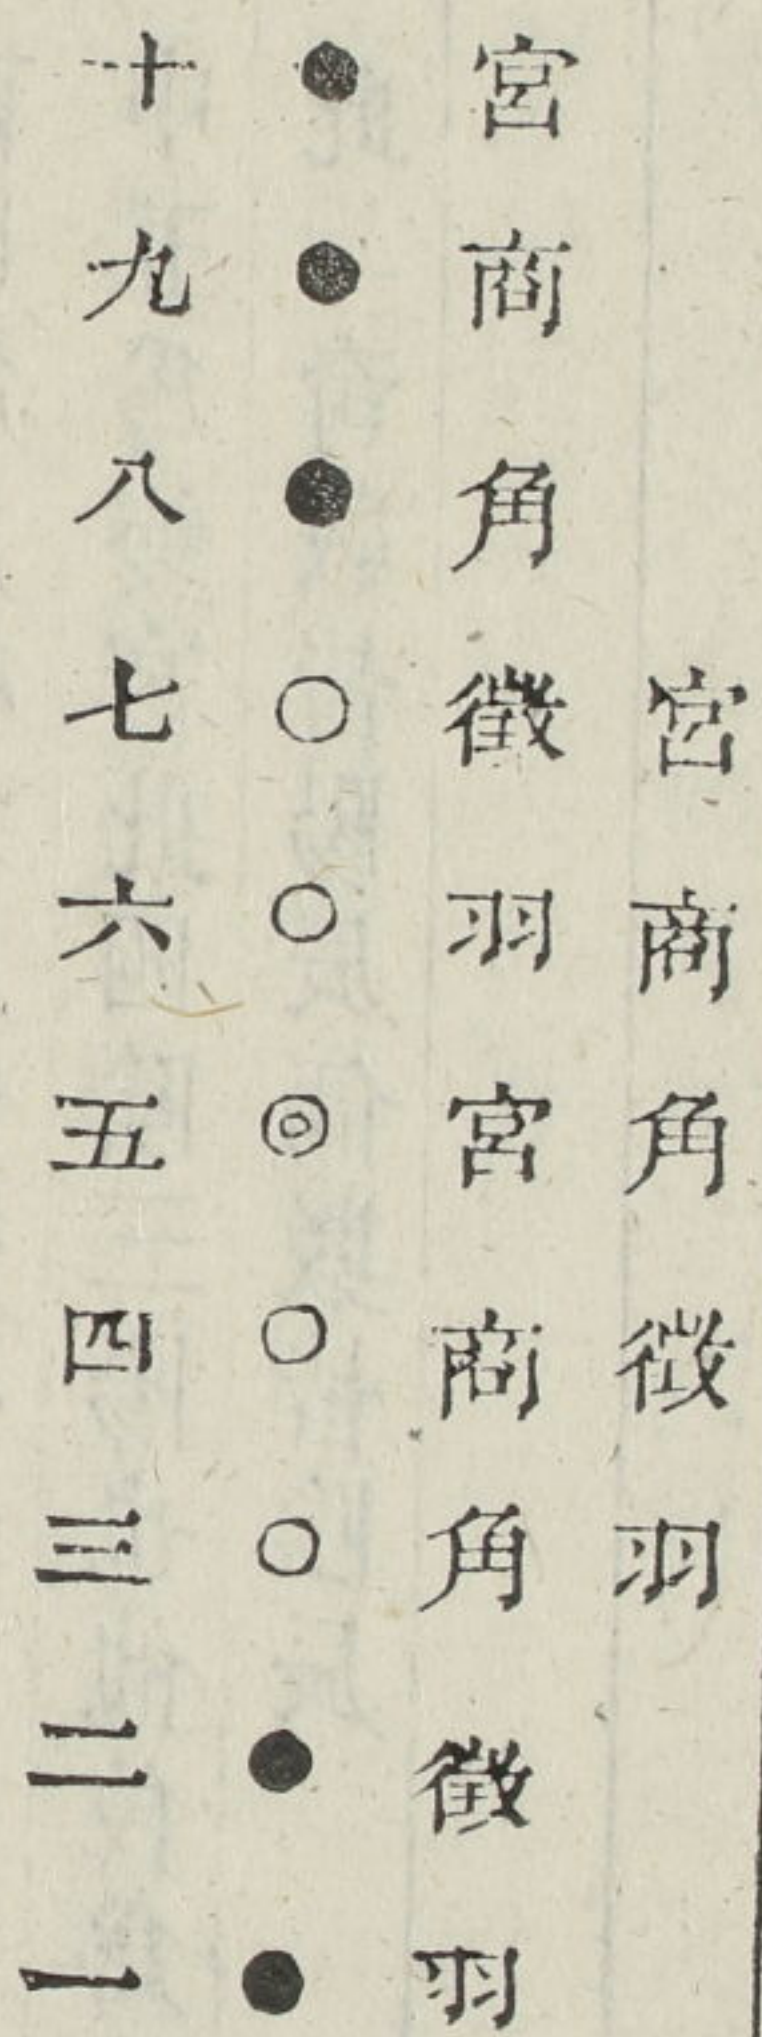 宮商角徵羽
宮商角徵羽宮商角徵羽
●●●○○◎○○●●
十九八七六五四三二一